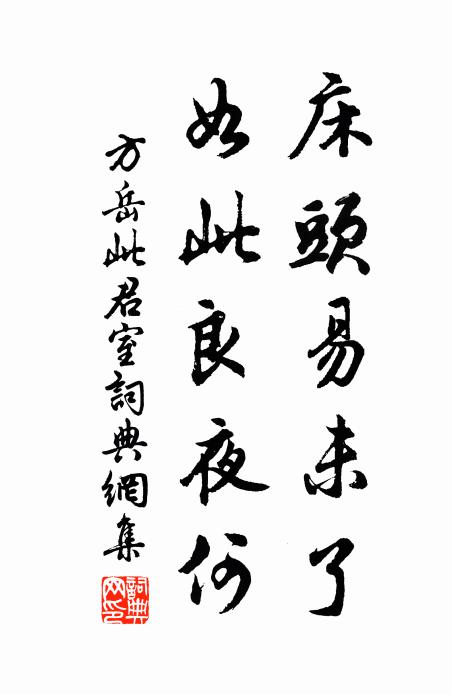 床頭易未了
如此良夜何
方岳此君室詞典網集
詞典网印